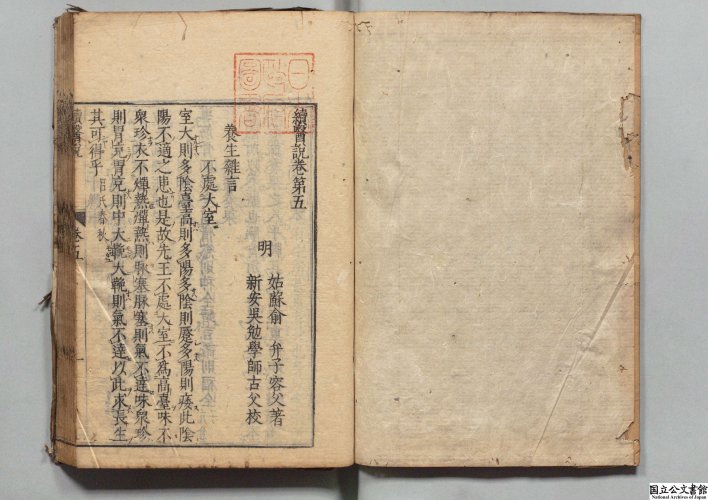 續醫說卷第五
明 姑蘇俞弁子容父著
新安吳勉學師古父校
養生雜言
不處大室
室大則多陰臺高則多陽多陰則蹷多陽則痿此陰
陽不適之患也是故先王不處大室不爲高臺味不
衆珍衣不燀熱燀熱則脉塞脉塞則氣不達味衆珍
則胃充胃充則中大鞔大鞔則氣不達以此求長生
其可得乎 呂氏春秋
續醫說 卷五
国立公文書館
National Archives of Japan